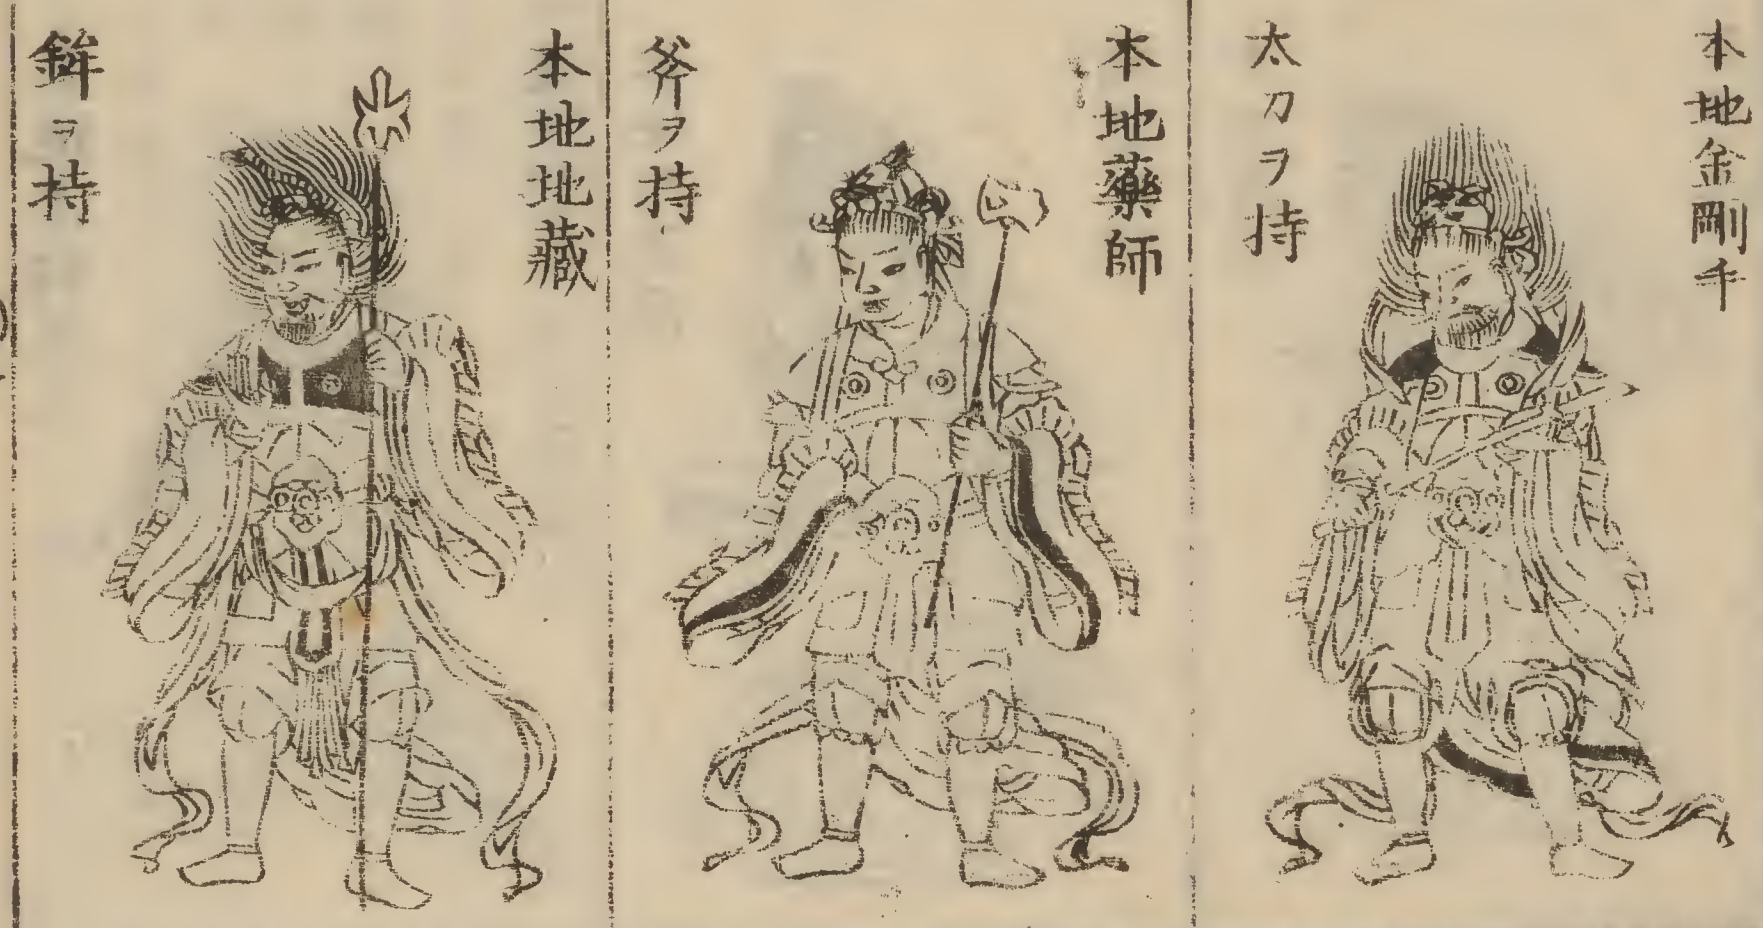 本地金剛手
太刀ヲ持
本地藥師
斧ヲ持
本地地藏
鉾ヲ持